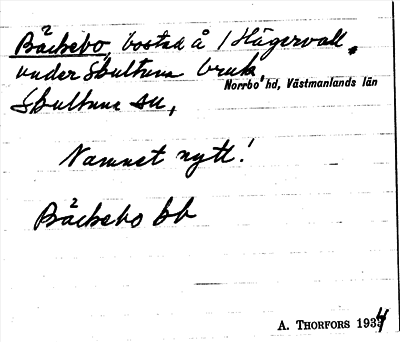 Bäckebo, bostad å 1 Hägervall,
under Skultuna bruk,
Norrbo hd, Västmanlands län
Skultuna sn,
Namnet nytt!
Bäckebo bb
A. THORFORS 1934